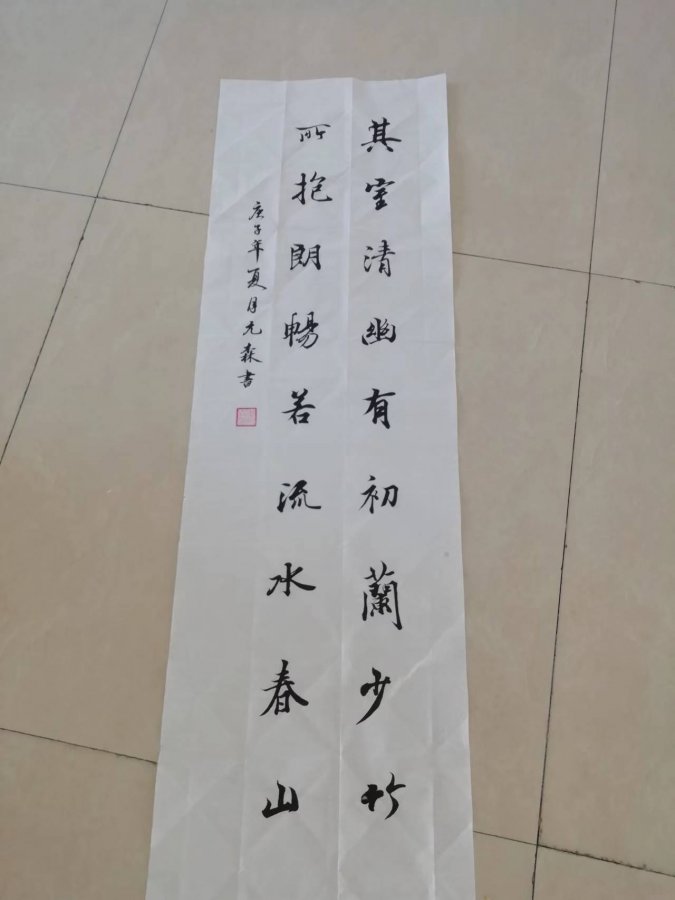 其室清幽有初蘭少竹
所抱朗暢若流水春山
庚子年夏月元森書